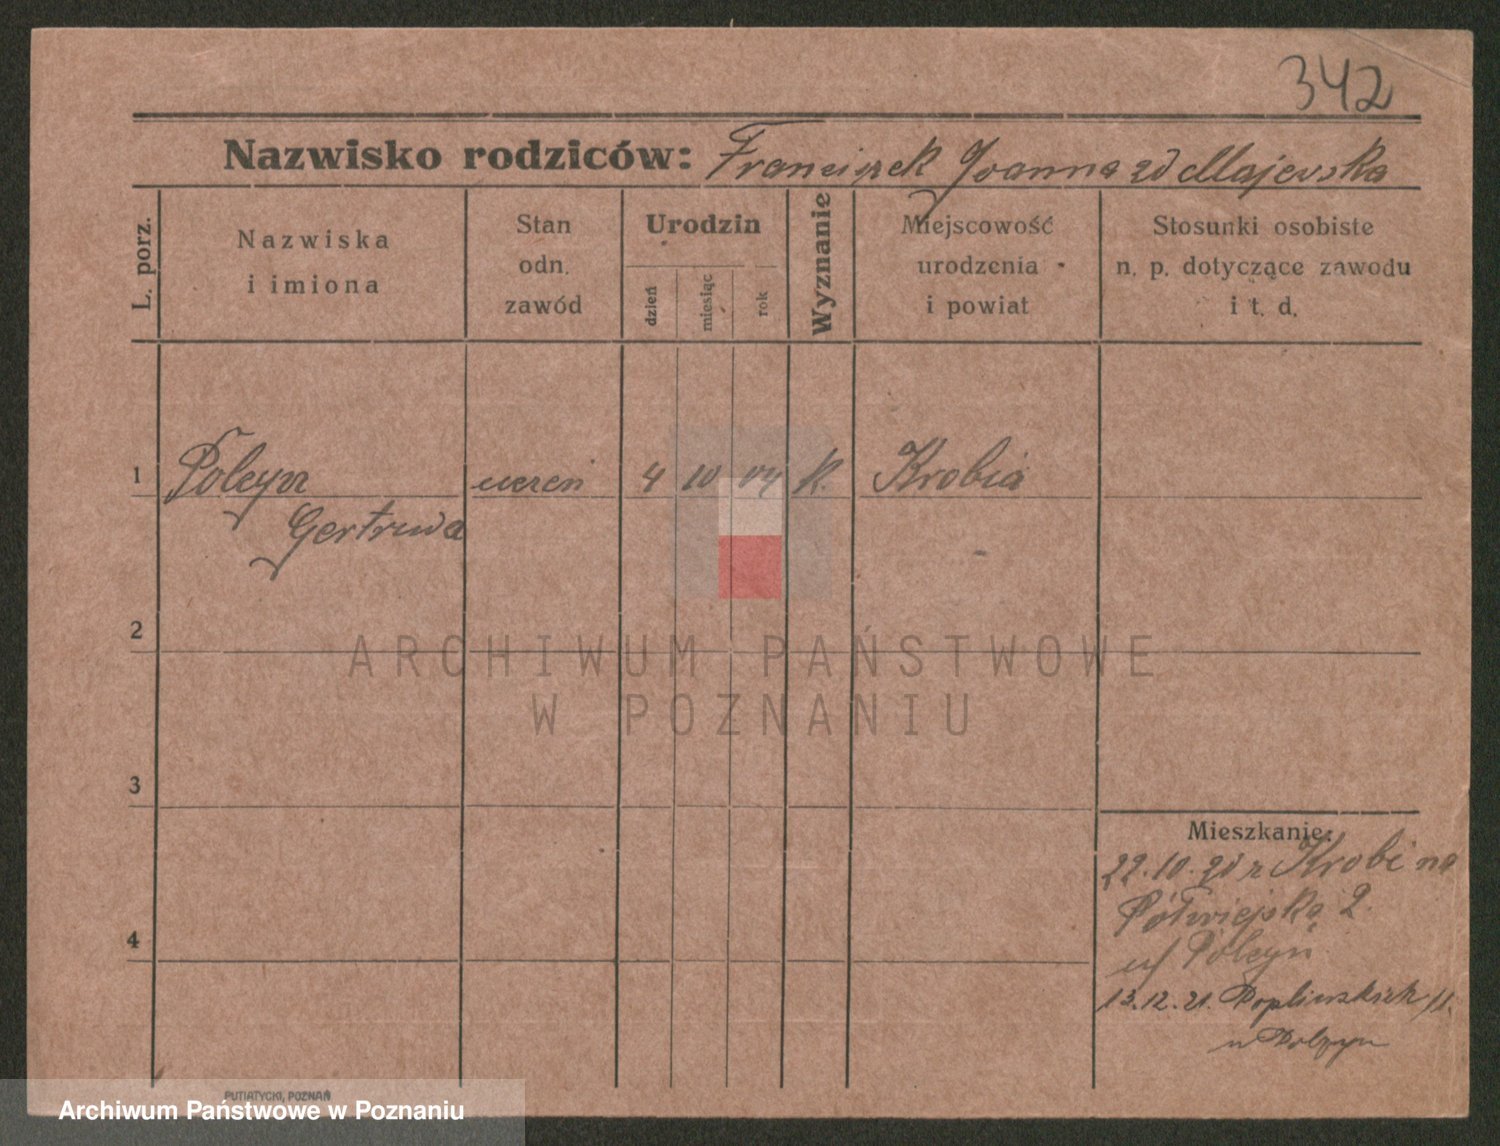 342
Nazwisko rodziców: Franciszek Joanna zd Majewska
L. porz.
Nazwiska
i imiona
Stan
odn.
zawód
Urodzin
dzień
miesiąc
rok
Wyznanie
Miejscowość
urodzenia
i powiat
Stosunki osobiste
n. p. dotyczące zawodu
i t. d.
1 Polczyn uczeń 4 10 04 k. Krobia
Gertruda
2
3
4
Mieszkanie:
22.10.20 z Krobi na
Półwiejską 2.
u/ Polczyn
13.12.21. 11.
u Polczyn
PUTIATYCKI, POZNAŃ
ARCHIWUM PAŃSTWOWE
W POZNANIU
Archiwum Państwowe w Poznaniu